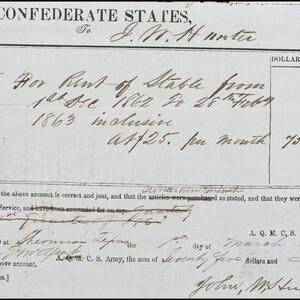 CONFEDERATE STATES,
To J. W. Hunter
DOLLAR
For Rent of Stable from
1st Dec 1862 to 28th Feby
1863 inclusive
At $25. per month 75
the above account is correct and just, and that the articles were purchased as stated, and they were
Service, and have been accounted for on my
A. Q. M. C. S.
at Sherman Texas the 1st day of March
A. Q. M. C. S. Army, the sum of Seventy five dollars and
above account.
John W. Hu